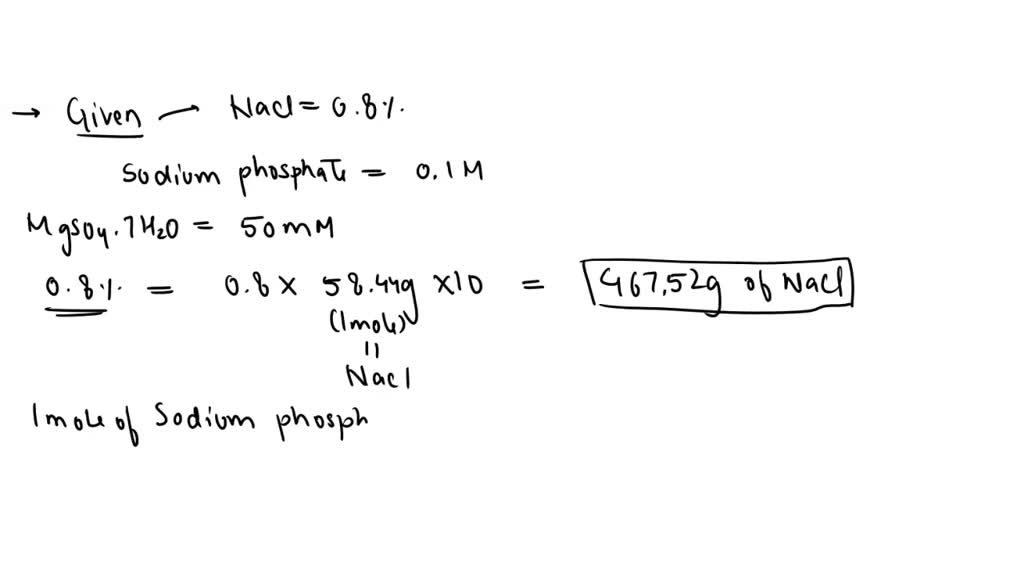 → Given — NaCl = 0.8%.
Sodium phosphate = 0.1M
MgSO4.7H2O = 50mM
0.8%. = 0.8 × 58.44g ×10 = 467.52g of NaCl
(1mole)
||
NaCl
1mole of Sodium phosph